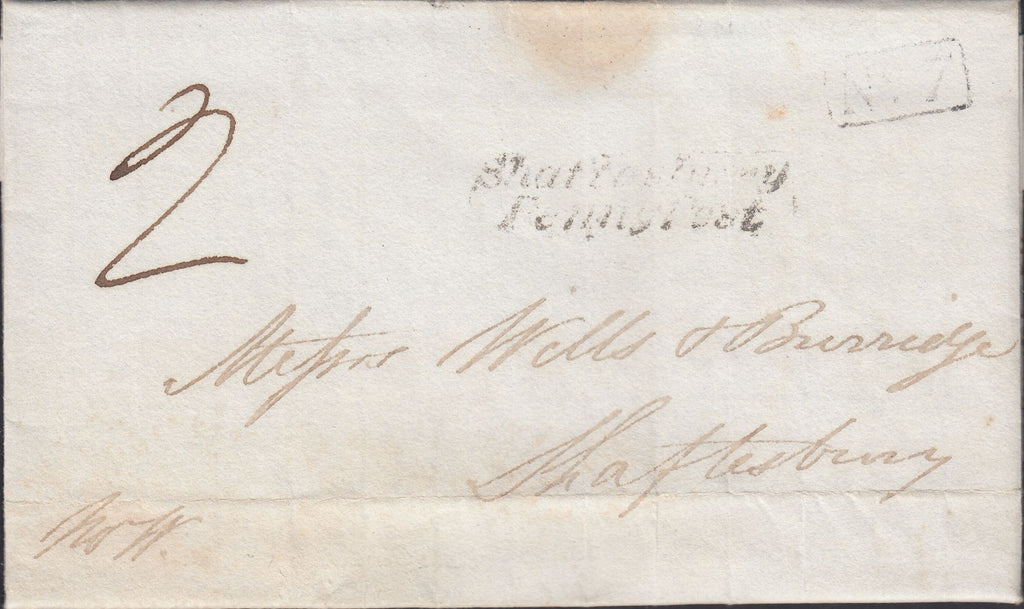 No. 7
2
Shaftesbury
Penny Post
Messrs Wills & Burridge
Shaftesbury